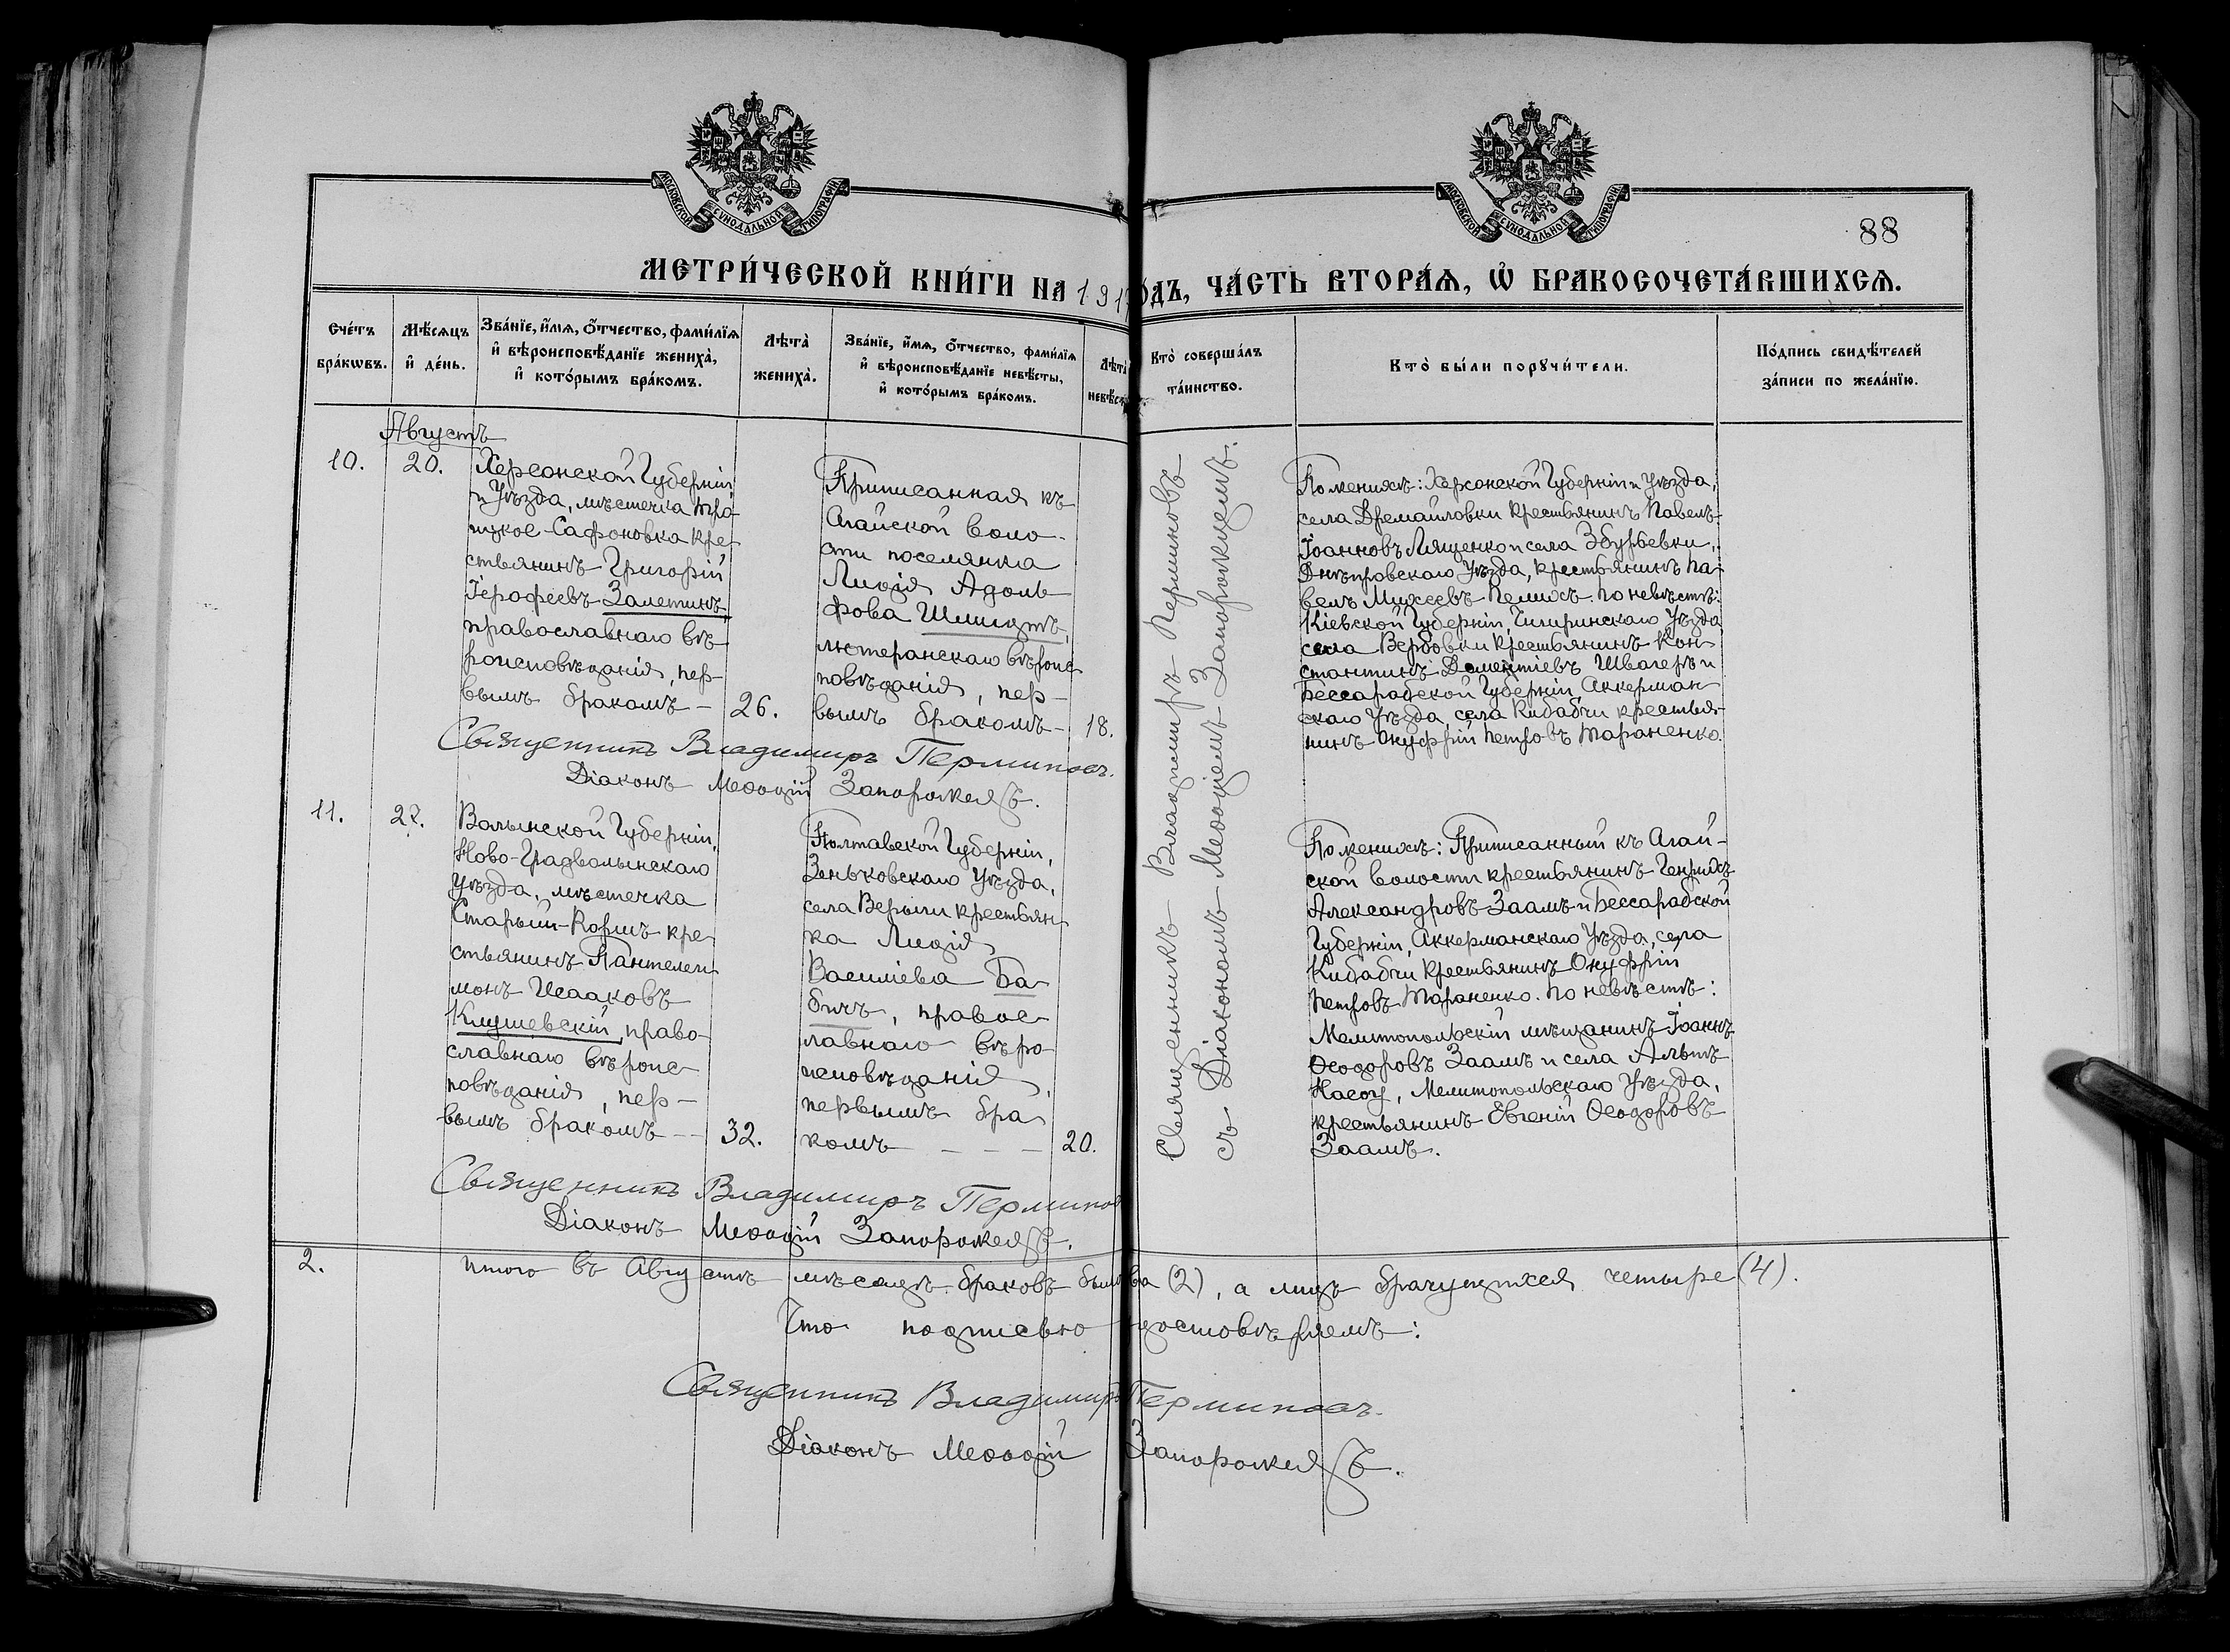 МОСКОВСКОЙ СУНОДАЛЬНОЙ ТИПОГРАФІИ
МОСКОВСКОЙ СУНОДАЛЬНОЙ ТИПОГРАФІИ
88
МЕТРИ́ЧЕСКОЙ КНИ́ГИ НА 191 ОДЪ, ЧА́СТЬ ВТОРА́Я, Ѡ҆ БРАКОСОЧЕТА́ВШИХСѦ.
Сче́тъ бра́кѡвъ.
Мѣ́сѧцъ и҆ де́нь.
Зва́нїе, и҆́мѧ, ѻ҆́тчество, фами́лїѧ
и҆ вѣроисповѣ́данїе жениха̀,
и҆ кото́рымъ бра́комъ.
Лѣта̀ жениха̀.
Зва́нїе, и҆́мѧ, ѻ҆́тчество, фами́лїѧ
и҆ вѣроисповѣ́данїе невѣ́сты,
и҆ кото́рымъ бра́комъ.
Лѣта̀
невѣ́ст
Кто̀ соверша́лъ
та́инство.
Кто̀ бы́ли порꙋчи́тели.
По́дпись свидѣ́телей
за́писи по жела́нїю.
Августъ
10.
20.
Херсонской Губерніи
и Уѣзда, мѣстечка Тро-
ицкое-Сафоновка кре-
стьянинъ Григорій
Іерофеевъ Залетинъ,
православнаго вѣ-
роисповѣданія, пер-
вымъ бракомъ –
26.
Приписанная къ
Агайской воло-
сти поселянка
Лидія Адоль-
фова Шмидтъ,
лютеранскаго вѣроис-
повѣданія, пер-
вымъ бракомъ –
18.
Священникъ Владимиръ Перминовъ
съ Діакономъ Меѳодіемъ Запорожцемъ.
По женихѣ: Херсонской Губерніи и Уѣзда,
села Дремайловки крестьянинъ Павелъ
Іоанновъ Лященко и села Збурьевки,
Днѣпровскаго Уѣзда, крестьянинъ Па-
велъ Михеевъ Пелихъ. По невѣстѣ:
Кіевской Губерніи, Чигиринскаго Уѣзда
села Вербовки крестьянинъ Кон-
стантинъ Дементіевъ Швагеръ и
Бессарабской Губерніи, Аккерман-
скаго Уѣзда, села Кибабчи крестья-
нинъ Онуфрій Петровъ Тараненко.
Священникъ Владимиръ Перминовъ.
Діаконъ Меѳодій Запорожецъ.
11.
27.
Волынской Губерніи,
Ново-Градволынскаго
Уѣзда, мѣстечка
Старый-Коршъ кре-
стьянинъ Пантелеи-
монъ Исааковъ
Клушевскій, право-
славнаго вѣроис-
повѣданія, пер-
вымъ бракомъ –
32.
Полтавской Губерніи,
Зеньковскаго Уѣзда,
села Верыги крестьян-
ка Лидія
Василіева Ба-
бичъ, правос-
лавнаго вѣро-
исповѣданія,
первымъ бра-
комъ – – –
20.
По женихѣ: Приписанный къ Агай-
ской волости крестьянинъ Генрихъ
Александровъ Заамъ и Бессарабской
Губерніи, Аккерманскаго Уѣзда, села
Кибабчи крестьянинъ Онуфрій
Петровъ Тараненко. По невѣстѣ:
Мелитопольскій мѣщанинъ Іоаннъ
Ѳеодоровъ Заамъ и села Альтъ
Насоу, Мелитопольскаго Уѣзда,
крестьянинъ Евгеній Ѳеодоровъ
Заамъ.
Священникъ Владимиръ Перминов
Діаконъ Меѳодій Запорожецъ.
2.
Итого въ Августѣ мѣсяцѣ браковъ было два (2), а лицъ брачущихся четыре (4).
Что подписью удостовѣряемъ:
Священникъ Владимиръ Перминовъ.
Діаконъ Меѳодій Запорожецъ.